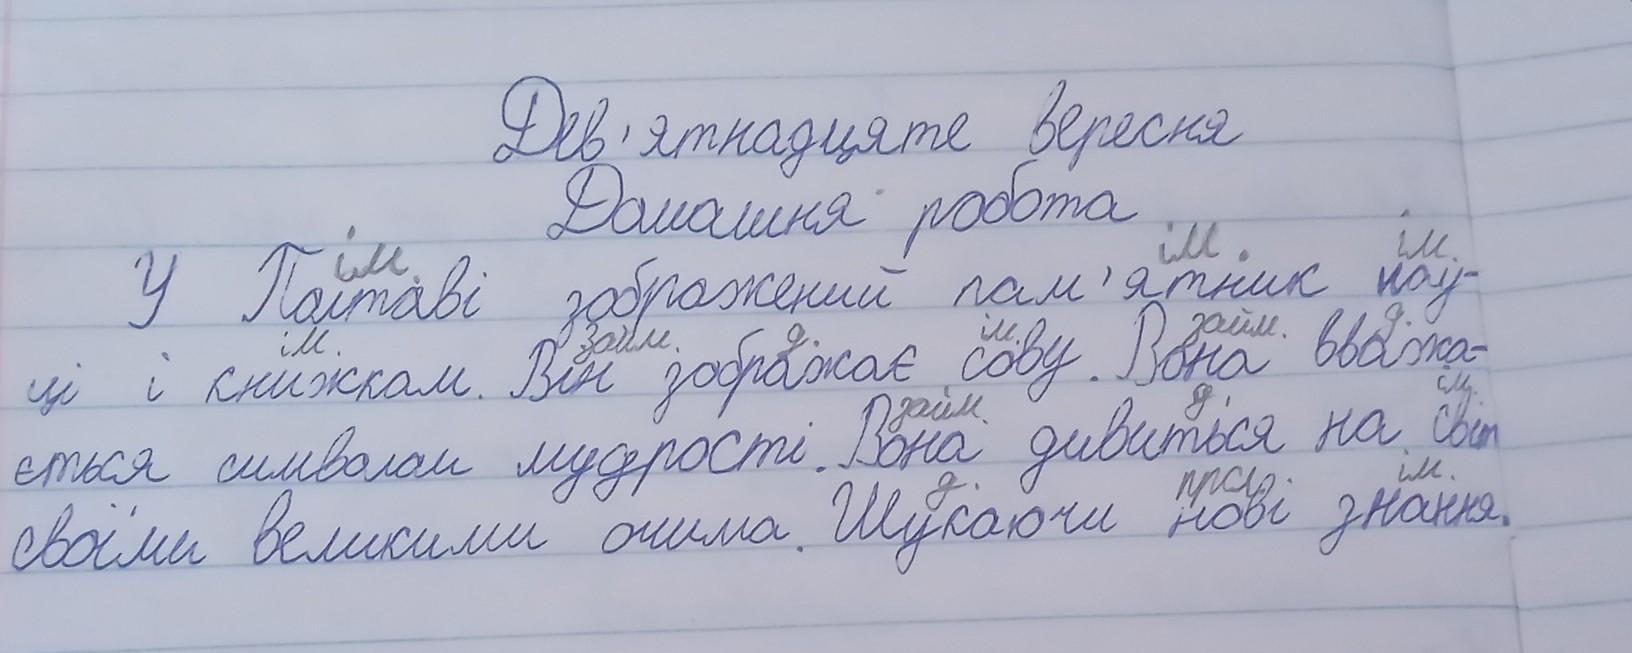 Дев'ятнадцяте вересня
Домашня робота
ім. ім. ім.
У Полтаві зображений пам'ятник нау-
ім. займ. д. ім. займ. д.
ці і книжкам. Він зображає сову. Вона вважа-
займ. д. ім.
ється символом мудрості. Вона дивиться на світ
д. ім.
своїми великими очима. Шукаючи нові знання.